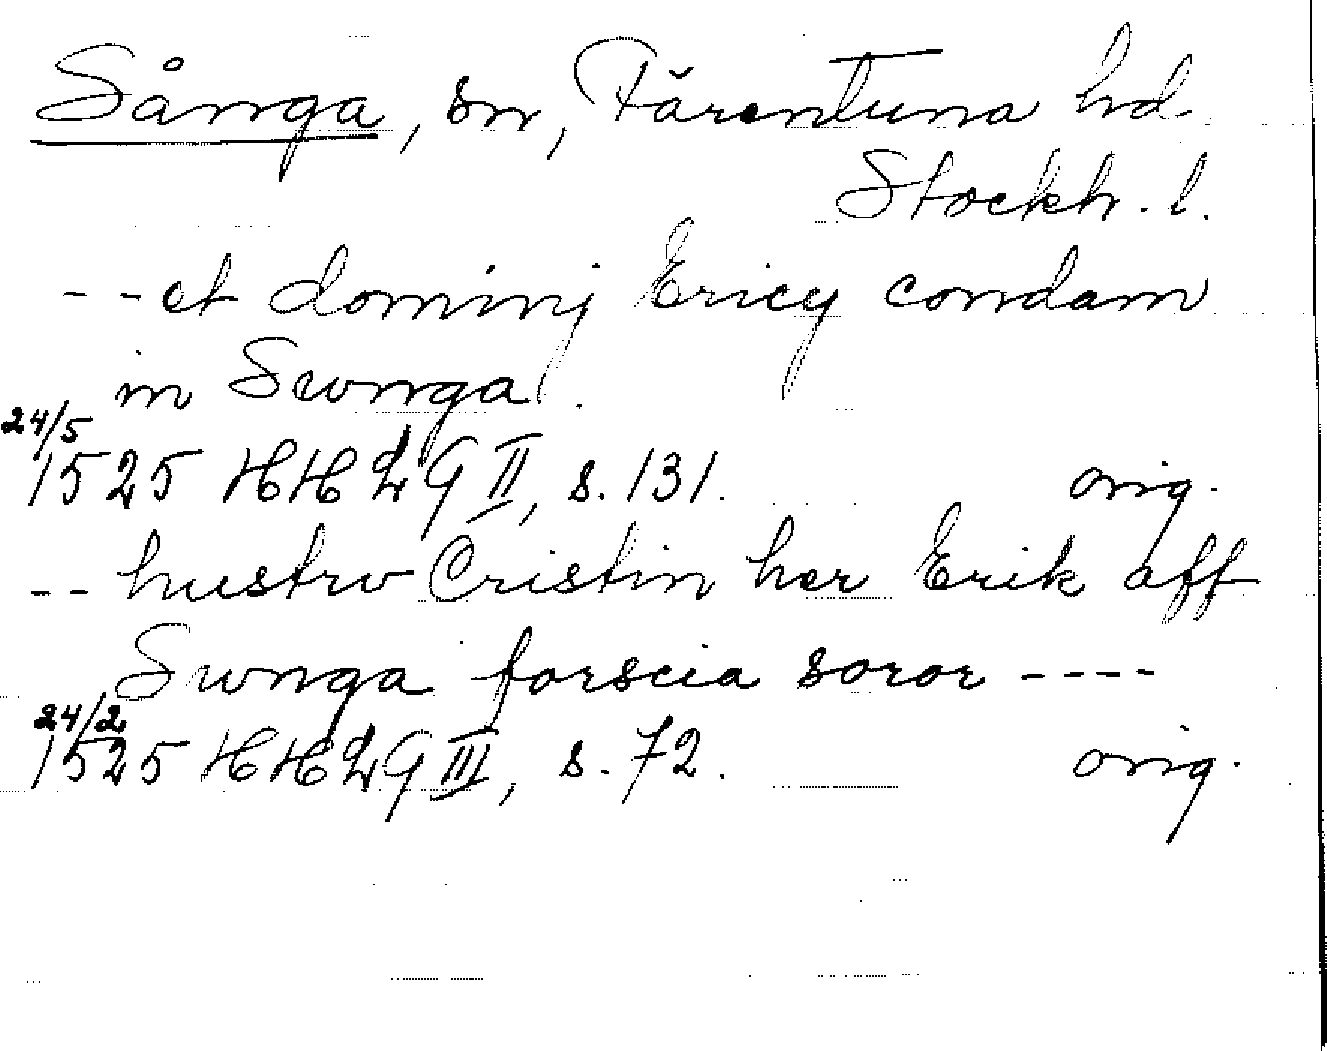 Sånga, sn, Färentuna hd.
Stockh. l.
--et dominj Ericy condam
in Swnga.
24/5
1525 HHLG II, s. 131. orig.
-- hustrv Cristin her Erik aff
Swnga forscia soror ----
24/2
1525 HHLG III, s. 72. orig.